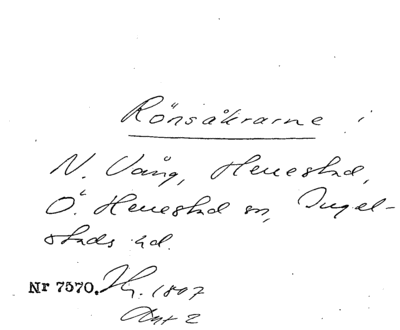 Rönsåkrarne i
N. Vång, Henestad,
Ö. Henestad sn, Ingel-
stads hd.
Nr 7570. 1807
Akt 2